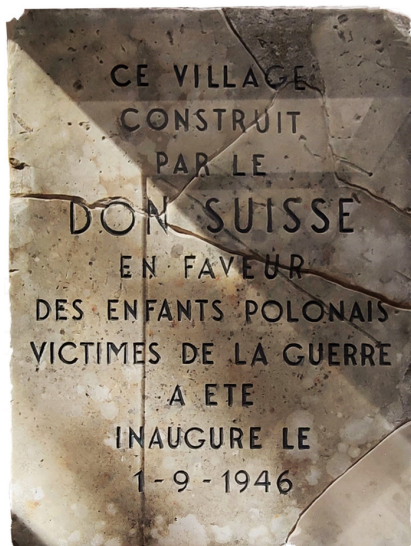 CE VILLAGE
CONSTRUIT
PAR LE
DON SUISSE
EN FAVEUR
DES ENFANTS POLONAIS
VICTIMES DE LA GUERRE
A ETE
INAUGURE LE
1-9-1946